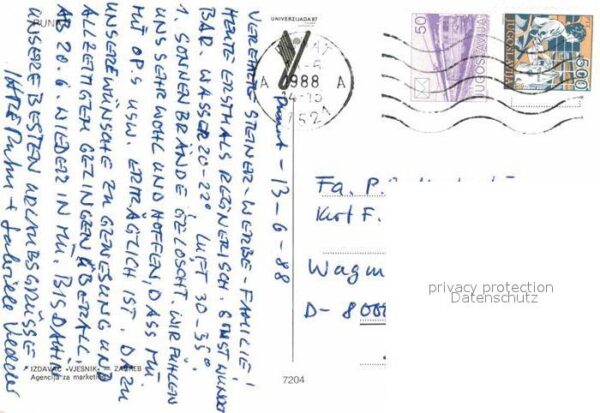 PUNAT
Punat - 13-6-88
VEREHRTE STEINER-WERBE-FAMILIE!
HEUTE ERSTMALS REGNERISCH. SONST WUNDER
BAR. WASSER 20-22° LUFT 30-35°.
1. SONNENBRÄNDE GELÖSCHT. WIR FÜHLEN
UNS SEHR WOHL UND HOFFEN, DASS MÜ
MIT OP.S USW. ERTRÄGLICH IST. DAZU
UNSERE WÜNSCHE ZU GENESUNG UND
ALLZEITIGEM GELINGEN ÜBERALL.
AB 20.6. WIEDER IN MÜ. BIS DAHIN
UNSERE BESTEN URLAUBSGRÜSSE
+ Gabriele
IZDAVAČ »VJESNIK« — ZAGREB
Agencija za marketing
7204
UNIVERZIJADA 87
1988
A A
50
JUGOSLAVIJA
500
JUGOSLAVIJA
Fa. P.
Kurt F.
Wagm
D- 8000
privacy protection
Datenschutz